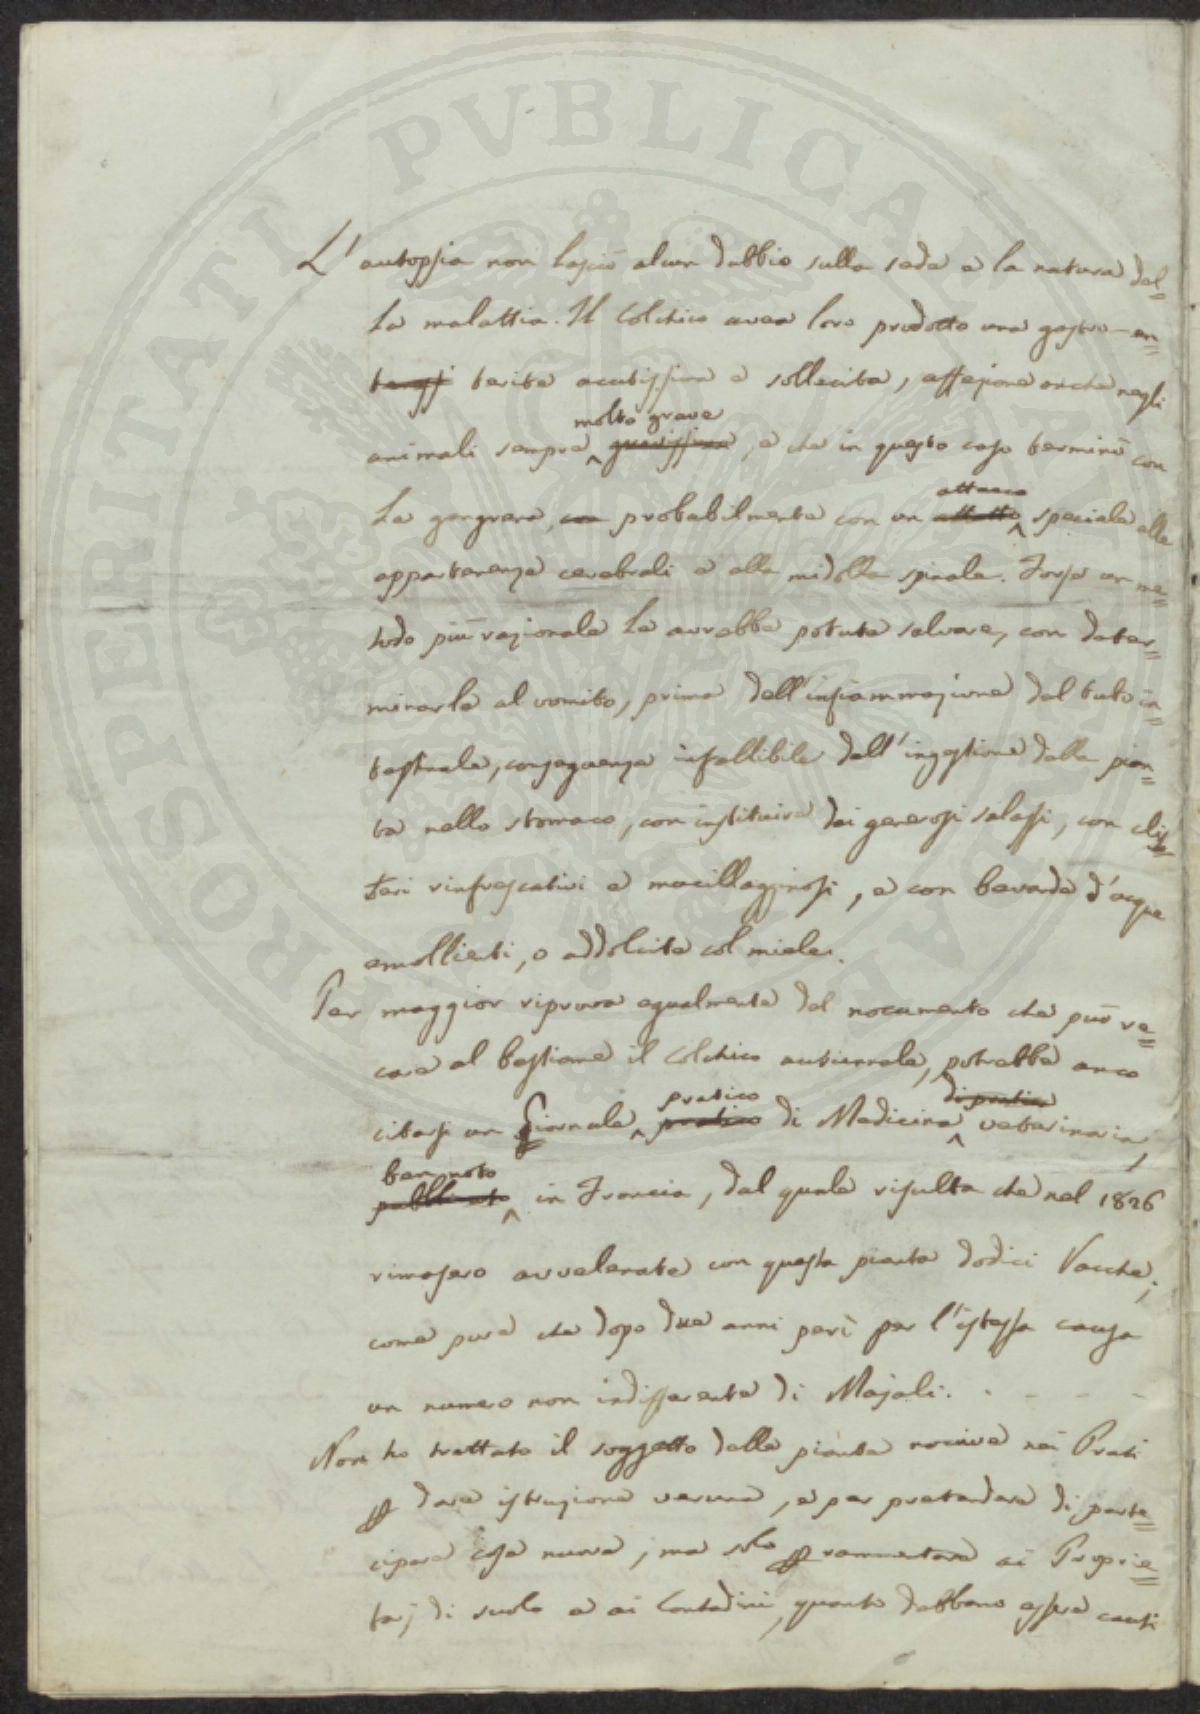 PROSPERITATI PVBLICAE AVGENDAE
L' autopsia non lasciò alcun dubbio sulla sede e la natura del=
la malattia. Il Colchico avea loro prodotto una gastro-en=
terite acutissima e sollecita, affezione anche negli
molto grave
animali sempre ^ gravissima, e che in questo caso terminò con
attacco
la gangrena, con probabilmente con un ^ speciale alle
appartenenze cerebrali e alla midolla spinale. Forse un me=
todo più razionale le avrebbe potute salvare, con deter=
minarle al vomito, prima dell'infiammazione del tubo in=
testinale, conseguenza infallibile dell'ingestione della pian=
ta nello stomaco, con instituire dei generosi salassi, con clis=
teri rinfrescativi e mucillagginosi, e con bevande d'acque
emollienti, o addolcite col miele.
Per maggior riprova egualmente del nocumento che può re=
care al bestiame il Colchico autunnale, potrebbe anco
pratico di pratica
citarsi un Giornale ^ pratico di Medicina ^ veterinaria,
ben noto
pubblicato ^ in Francia, dal quale risulta che nel 1826
rimasero avvelenate con questa pianta dodici Vacche;
come pure che dopo due anni perì per l'istessa causa
un numero non indifferente di Majali. - - - -
Non ho trattato il soggetto delle piante nocive nei Prati
p dare istruzione veruna, e per pretendere di parte=
cipare cosa nuova; ma solo p rammentare ai Proprie=
tarj di suolo e ai Contadini, quanto debbano essere cauti